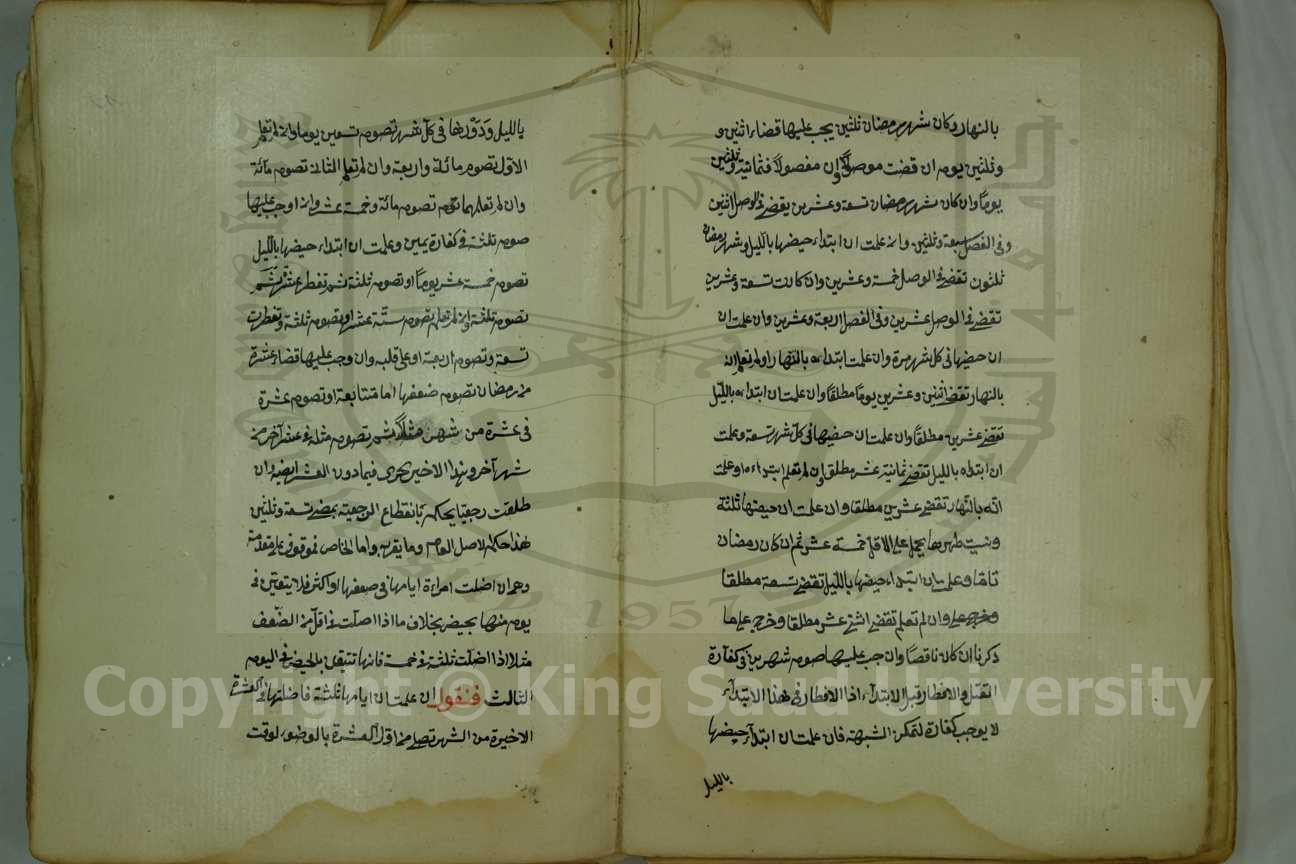 بالنهار وكان شهر رمضان ثلثين يجب عليها قضاء اثنين و
وثلثين يوم ان قضت موصولا وان مفصولا فثمانية وثلثين
يوما وان كان شهر رمضان تسعة وعشرين يقضے فى الوصل اثنين
وفى الفصل سبعة وثلثين وان علمت ان ابتداء حيضها بالليل وشهر رمضان
ثلثون تقضے فى الوصل خمسة وعشرين وان كانت تسعة وعشرين
تقضے فى الوصل عشرين وفى الفصل اربعة وعشرين وان علمت ان
ان حيضها فى كل شهر مرة وان علمت ابتداءه بالنهار او لم تعلم انه
بالنهار تقضے اثنين وعشرين يوما مطلقا وان علمت ان ابتداءه بالليل
تقضے عشرين مطلقا وان علمت ان حيضها فى كل شهر تسعة وعلمت
ان ابتداه بالليل تقضے ثمانية عشر مطلقا وان لم تعلم ابتداءه او علمت
انه بالنهار تقضے عشرين مطلقا وان علمت ان حيضها ثلثة
ونسيت طهرها يحمل على الاقل خمسة عشر ثم ان كان رمضان
تاما وعلمت ان ابتداء حيضها بالليل تقضے تسعة مطلقا
وخرج على وان لم تعلم تقضے اثنى عشر مطلقا وخرج على ما
ذكرنا ان كان ناقصا وان جب عليها صوم شهرين فى كفارة
القتل والافطار قبل الابتداء اذا الافطار فى هذا الابتداء
لا يوجب كفارة لتمكن الشبهة فان علمت ان ابتداء حيضها
بالليل
بالليل ودورها فى كل شهر تصوم تسعين يوما وان لم تعلم
الاول تصوم مائة واربعة وان لم تعلم الثانى تصوم مائة
وان لم تعلمهما تصوم مائة وخمسة عشر وان اوجب عليها
صوم ثلثة فى كفارة يمين وعلمت ان ابتداء حيضها بالليل
تصوم خمسة عشر يوما او تصوم ثلثة ثم تفطر عشرة ثم
تصوم ثلثة وان لم تعلم تصوم ستة عشر او تصوم ثلثة وتفطر
تسعة وتصوم اربعة او على قلبه وان وجب عليها قضاء عشرة
من رمضان تصوم ضعفها اما متتابعة او تصوم عشرة
فى عشرة من شهر مثلا ثم تصوم مثله فى عشر آخر من
شهر آخر وهذا الاخير يجرى فيما دون العشر ايضا وان
طلقت رجعيا يحكم بانقطاع الرجعية بمضے تسعة وثلثين
هذا حكم الاصل العام وما يقرب واما الخاص فموقوف على مقدمة
وهى ان اضلت امراءة ايامها فى ضعفها او اكثر فلا يتقين فى
يوم منها بحيض بخلاف ما اذا اضلت فى اقل من الضعف
مثلا اذا اضلت ثلثة فى خمسة فانها تتيقن بالحيض فى اليوم
الثالث فنقول ان علمت ان ايامها ثلثة فاضلتها فى العشرة
الاخيرة من الشهر تصلے من اول العشرة بالوضوء لوقت
Copyright © King Saud University
1957